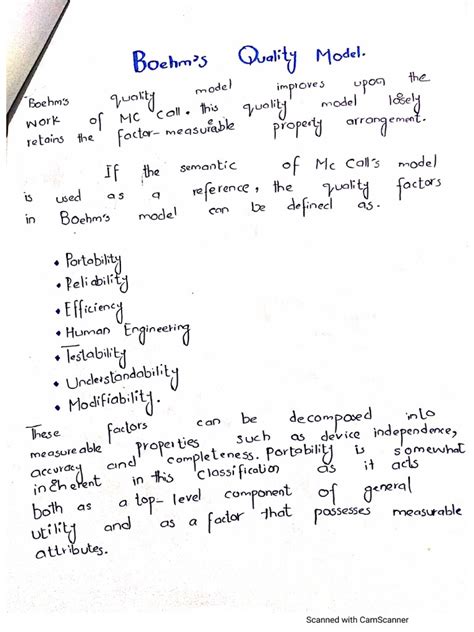 Boehm's Quality Model.
Boehm's quality model improves upon the
work of MC Call. this quality model losely
retains the factor-measurable property arrangement.
If the semantic of Mc Call's model
is used as a reference, the quality factors
in Boehm's model can be defined as.
• Portability
• Reliability
• Efficiency
• Human Engineering
• Testability
• Understandability
• Modifiability.
These factors can be decomposed into
measureable properties such as device independence,
accuracy and completeness. Portability is somewhat
inherent in this classification as it acts
both as a top-level component of general
utility and as a factor that possesses measurable
attributes.
Scanned with CamScanner